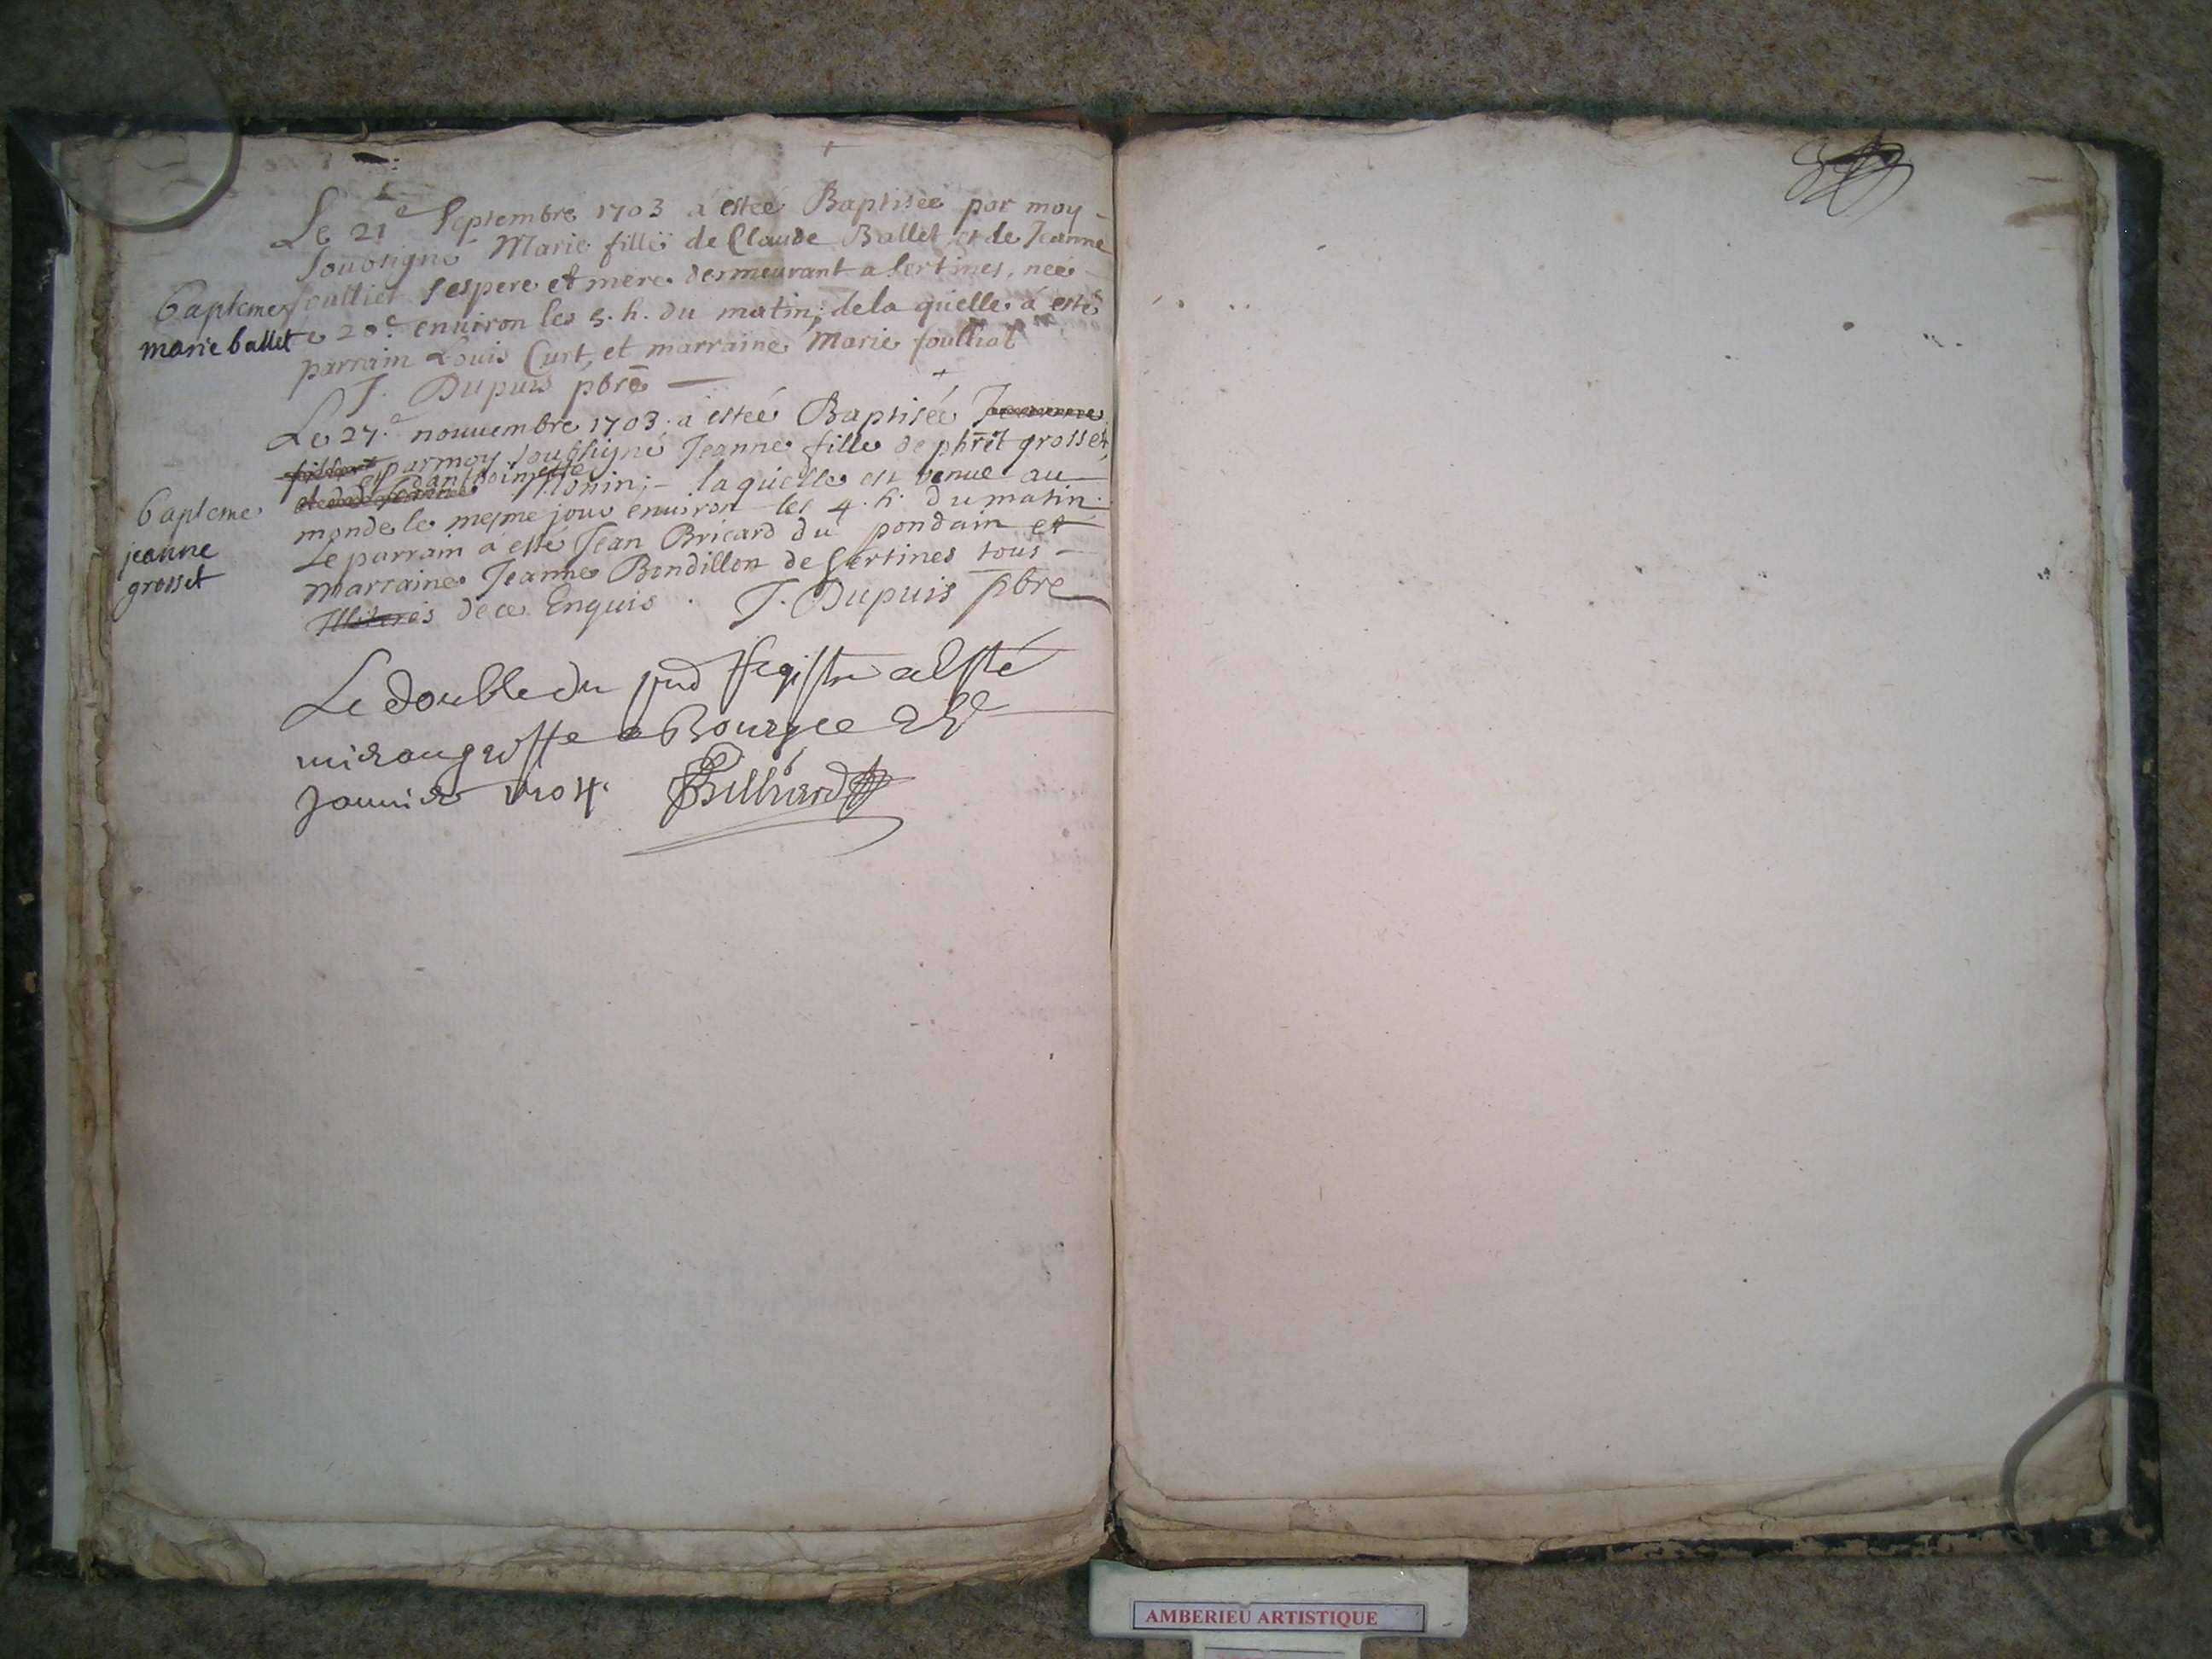 Le 21e Septembre 1703 a estée Baptisée par moy
soubsigné Marie fille de Claude Ballet et de Jeanne
Bapteme foulliet ses pere et mere demeurant a Sertines, née
marie ballet le 20e environ les 5. h. du matin; de la quelle a esté
parrain Louis Curt, et marraine Marie foulliat
J. Dupuis pbre
Le 27.e nouuembre 1703. a estée Baptisée
par moy soubsigné Jeanne fille de phret grosset,
et d'anthoinette Monin; laquielle est venue au
Bapteme
monde le mesme jour enuiron les 4. h. du matin.
jeanne
Le parrain a esté Jean Bricard du pondain et
grosset
marraine Jeanne Bondillon de Sertines tous
Illiterés de ce Enquis. J. Dupuis pbre
Le double du pnd Registre a Esté
mis au greffe a Bourg ce
Januier 1704. Billiard
AMBERIEU ARTISTIQUE